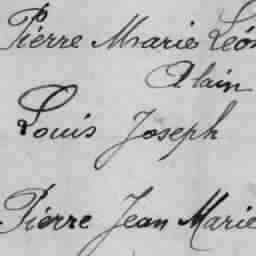 Pierre Marie Léon
Alain
Louis Joseph
Pierre Jean Marie